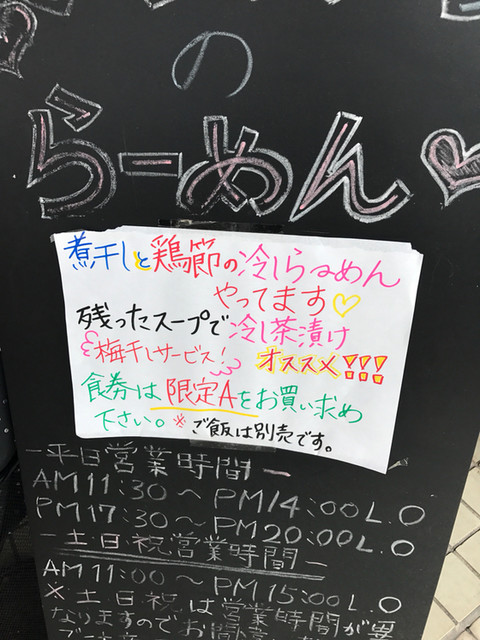 の
らーめん
煮干しと鶏節の冷しらぁめん
やってます
残ったスープで冷し茶漬け
梅干しサービス！オススメ!!!
食券は限定Aをお買い求め
下さい。※ご飯は別売です。
-平日営業時間-
AM11:30～PM14:00L.O
PM17:30～PM20:00L.O
-土日祝営業時間-
AM11:00～PM15:00L.O
※土日祝は営業時間が異
なりますのでお問い